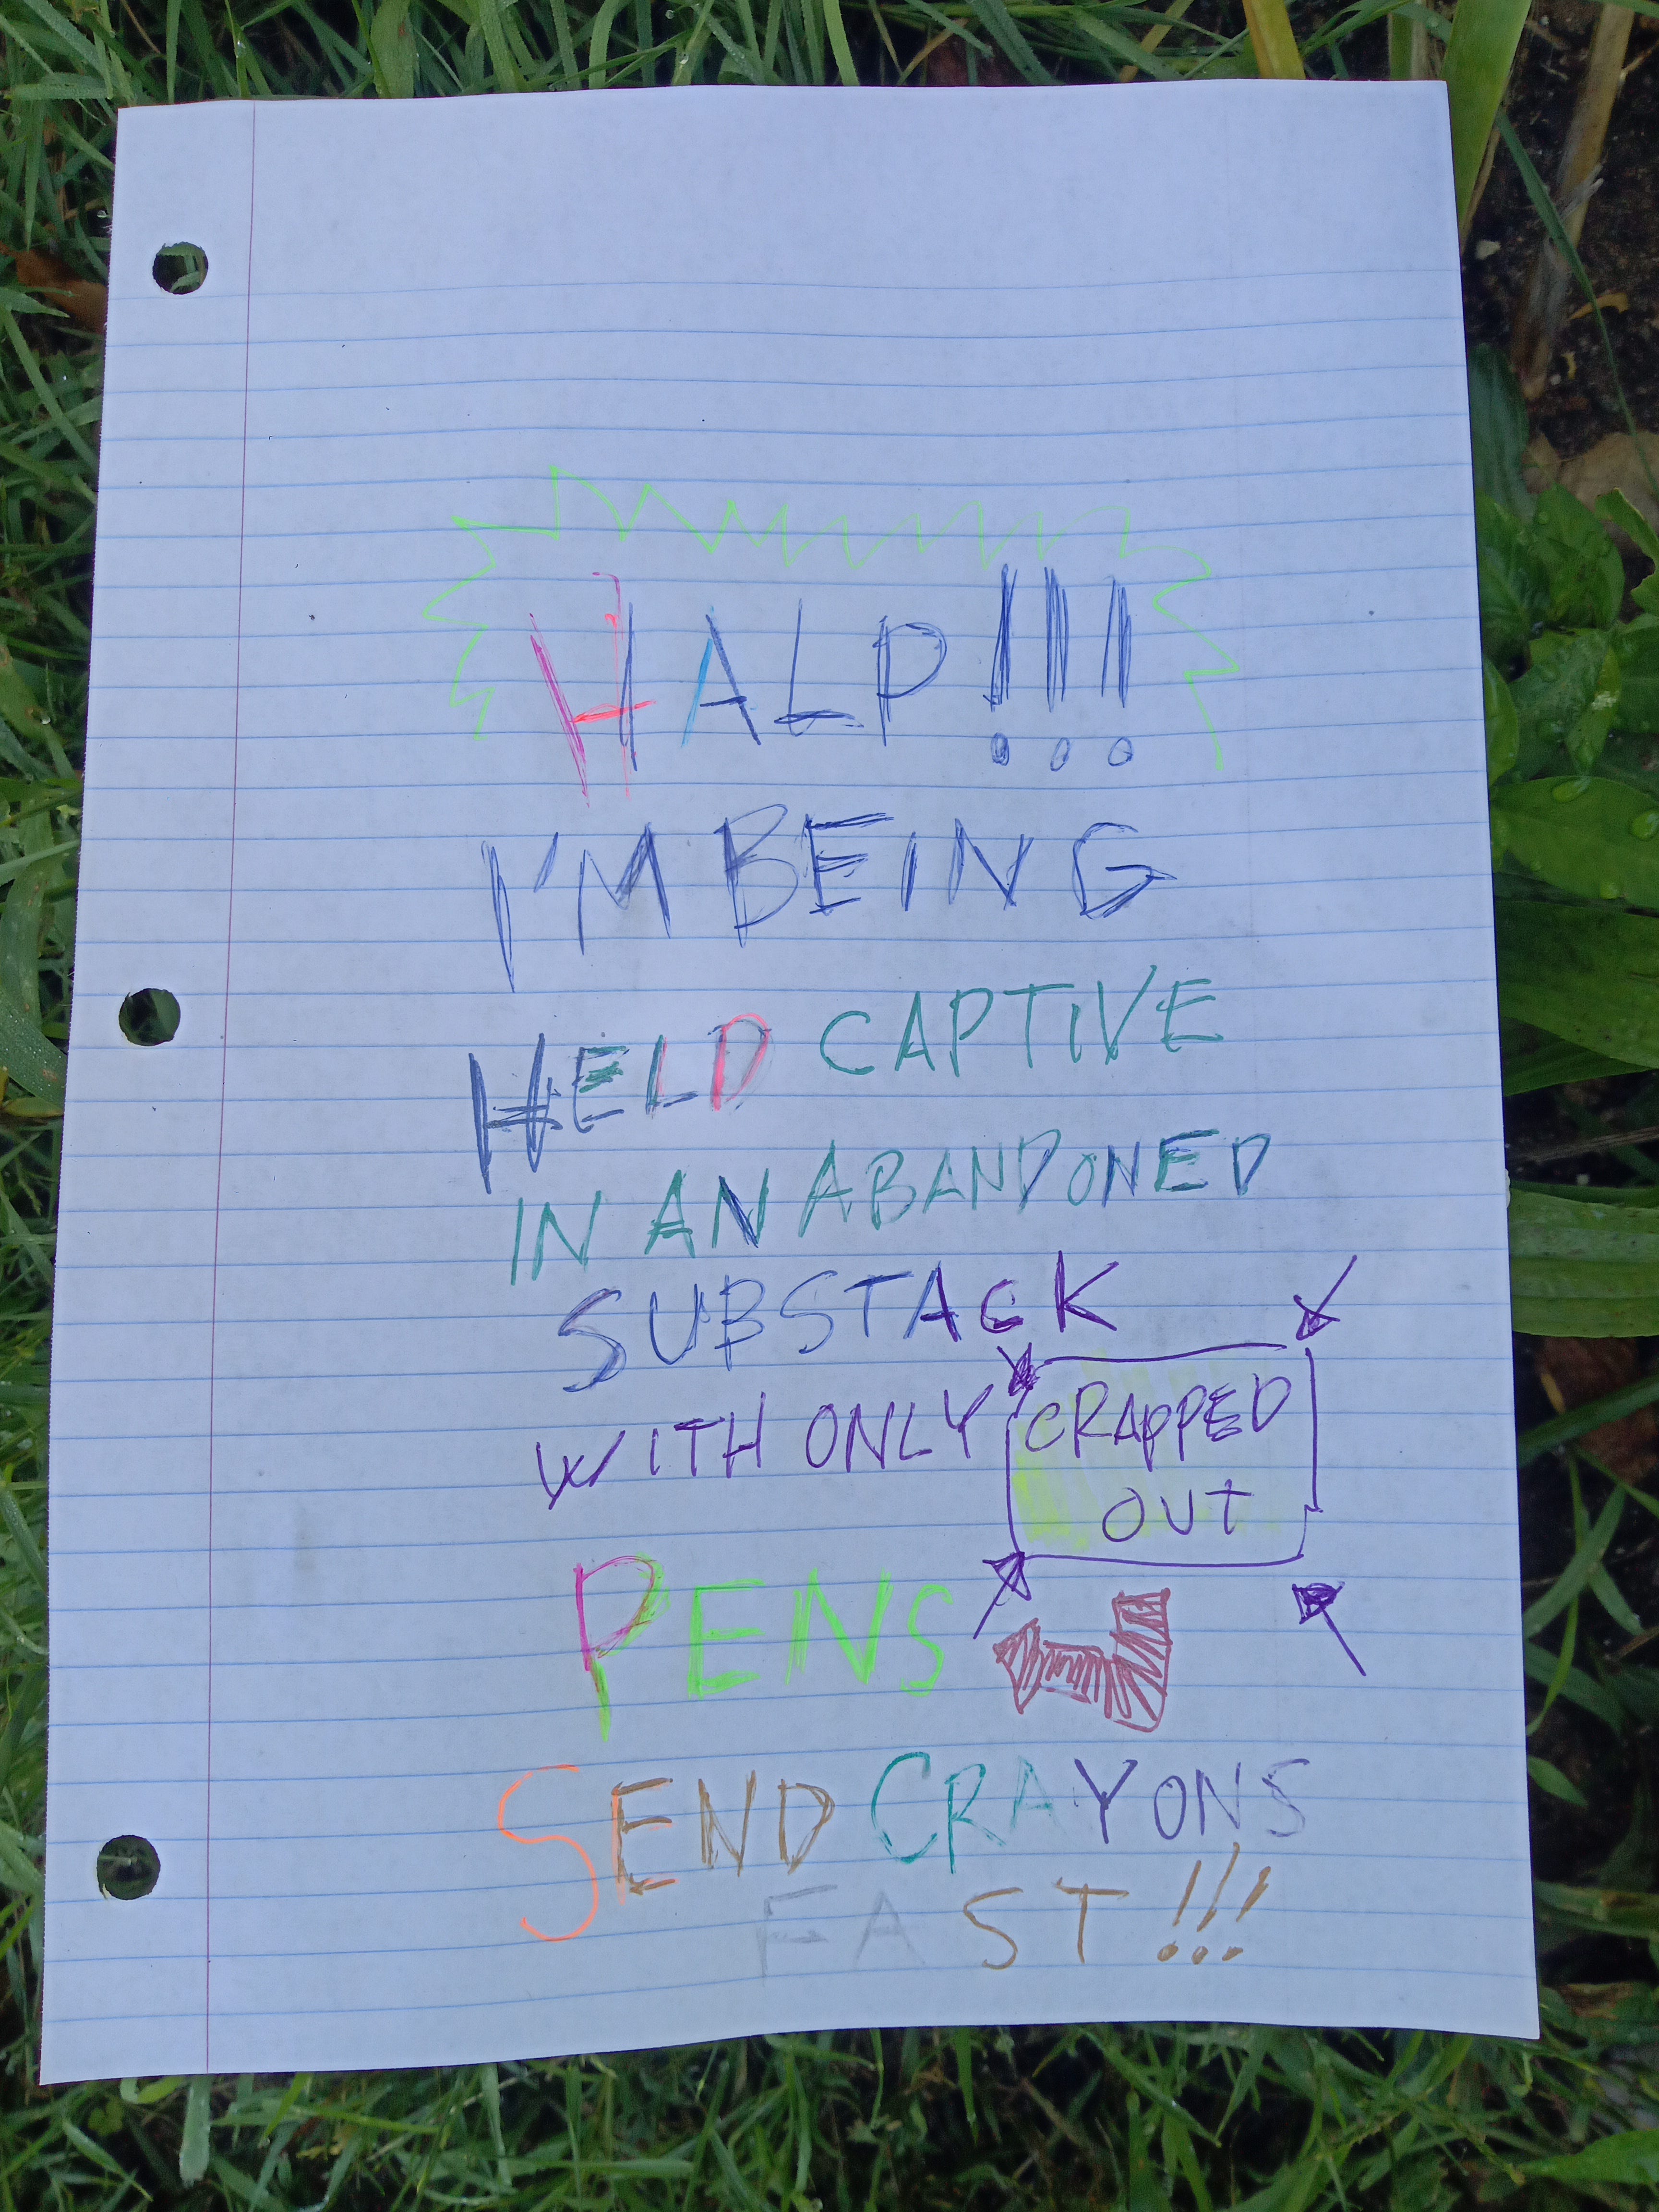 HALP!!!
I'M BEING
HELD CAPTIVE
IN AN ABANDONED
SUBSTACK
WITH ONLY CRAPPED
OUT
PENS
SEND CRAYONS
FAST!!!